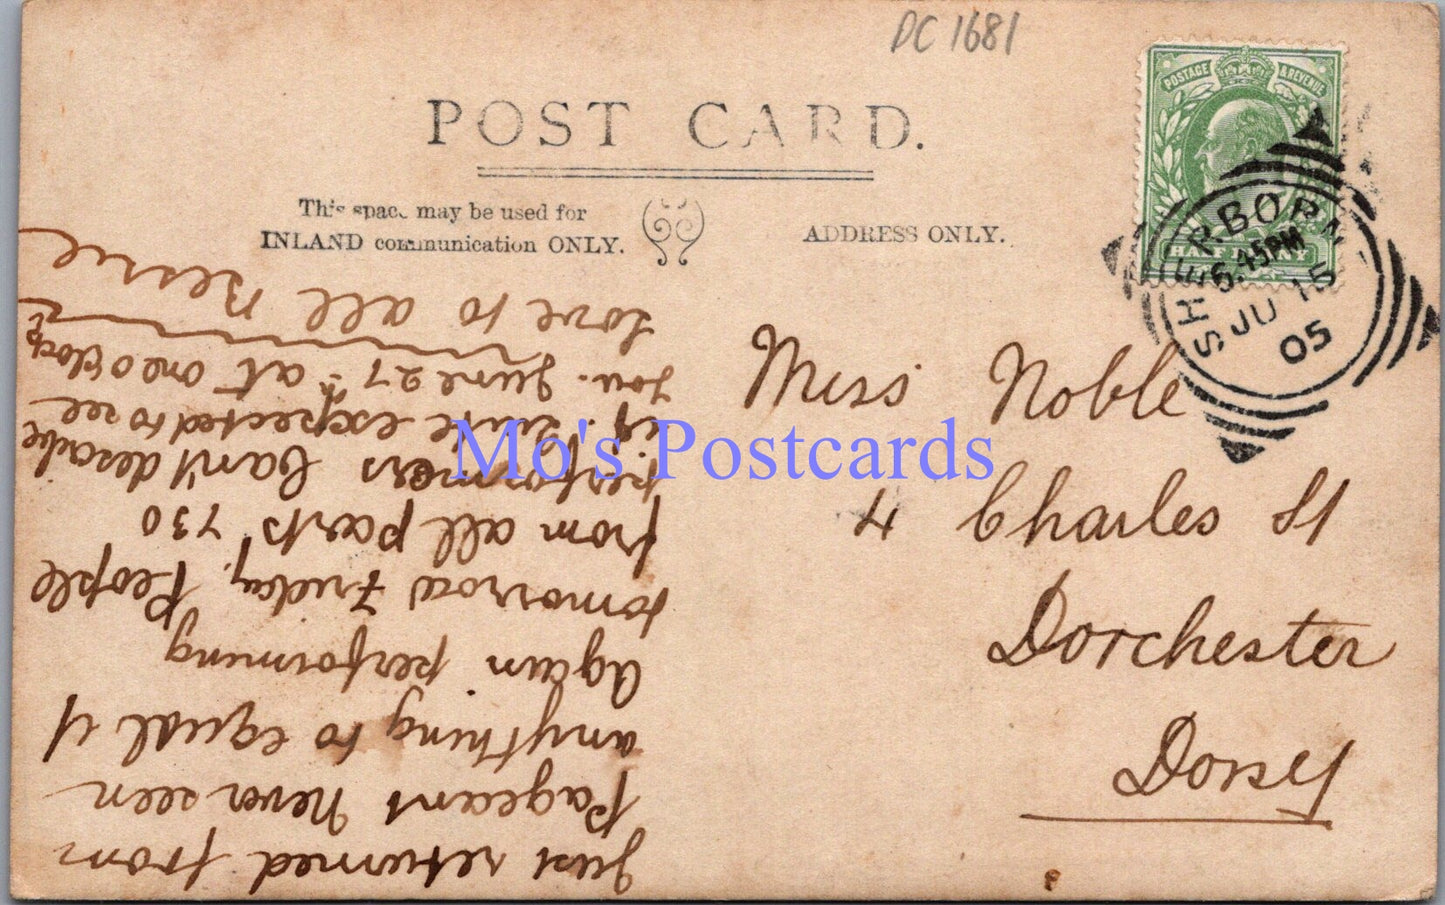 DC 1681
POST CARD.
This space may be used for
INLAND communication ONLY.
ADDRESS ONLY.
POSTAGE & REVENUE
HALF PENNY
SHERBORNE
6.45PM
JU 15
05
Miss Noble
4 Charles St
Dorchester
Dorset
Just returned from
Pageant never seen
anything to equal it
again performing
tomorrow Friday. People
from all parts 730
performers Can't describe
it. quite expected to see
you. June 27th at one o'clock
Love to all Bessie
Mo's Postcards